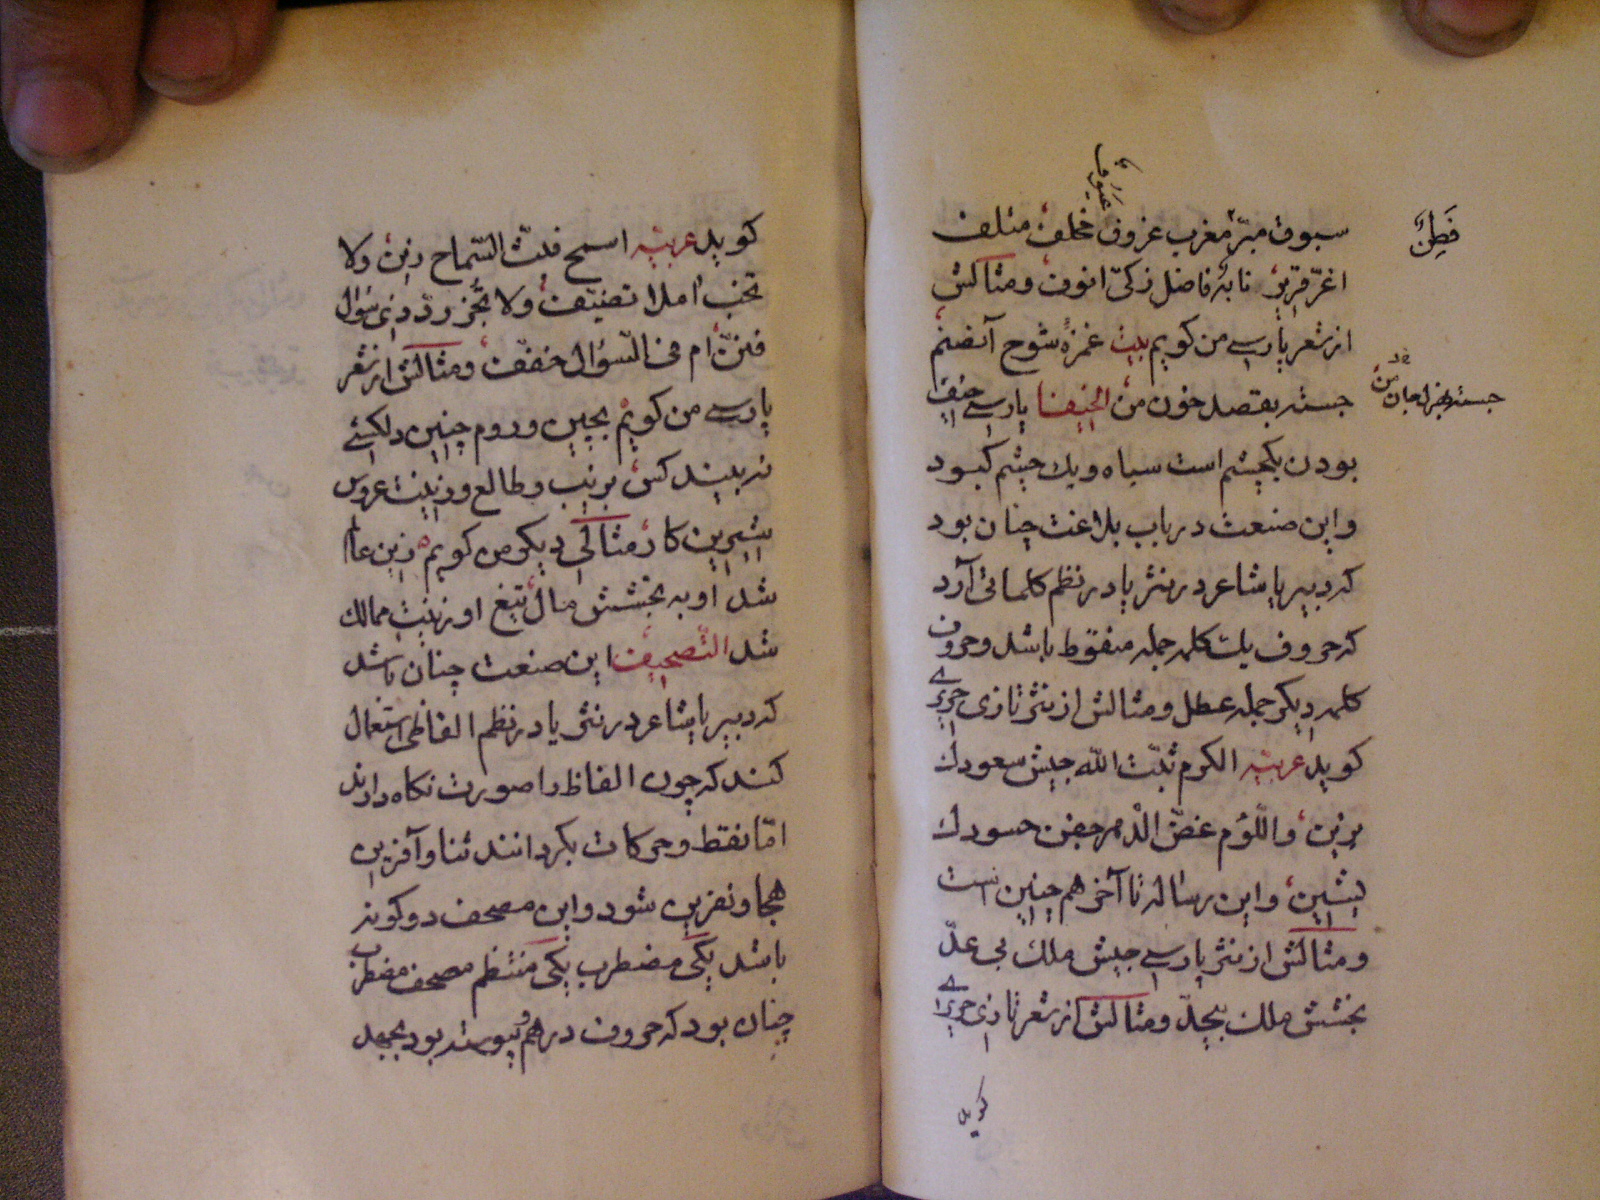 سبوق مبرّ مغرب عزوف مخلف متلف
عَیُوف
فَطِنٌ
اغرّ فرید نابه فاضل زکیّ انوف ومثالش
از شعر پارسے من کویم بیت غمزهٔ شوخ آنصنم
جسته بقصد خون من الخیفا پارسے خیف
بودن یکچشم است سیاه ویك چشم کبود
واین صنعت در باب بلاغت چنان بود
که دبیر یا شاعر در نثر یا در نظم کلماتی آرد
که حروف یك کلمه جمله منقوط باشد وحروف
کلمه دیکر جمله عطل ومثالش از نثر تازی حریرے
کوید عربیّه الکرم ثبّت الله جیش سعودك
یزین واللّؤم غضّ الدّهر جفن حسودك
یشین واین رساله تا آخر هم چنین است
ومثالش از نثر پارسے جیش ملك بی عدّ
بخشش ملك بیحدّ ومثالش از شعر تازی حریرے
کوید
کوید عربیّه اسمح فبثّ السّماح زین ولا
تخب آملا تضیّف ولا تجز ردّ ذی سؤال
فنّن ام فی السّؤال خفّف ومثالش از شعر
پارسے من کویم بچین وروم چنین دلکشے
نه بیند کس بزیب وطالع وزینت عروس
شیرین کار مثالی دیکر من کویم زین عالم
شد او به بخشش مال تیغ او زینت ممالك
شد التّصحیف این صنعت چنان باشد
که دبیر یا شاعر در نثر یا در نظم الفاظی استعمال
کند که چون الفاظ را صورت نکاه دارند
امّا نقط وحرکات بکردانند ثنا وآفرین
هجا ونفرین شود واین مصحف دو کونه
باشد یکی مضطرب یکی منتظم مصحف مضطرب
چنان بود که حروف در هم پیوسته بود بجهد